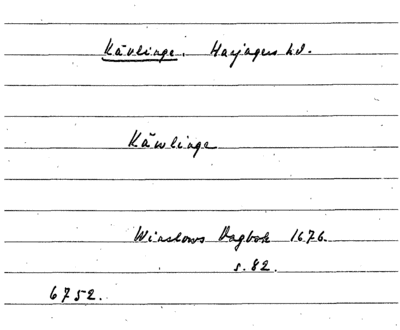 Kävlinge. Harjagers hd.
Käwlinge
Winslows Dagbok 1676.
s. 82.
6752.